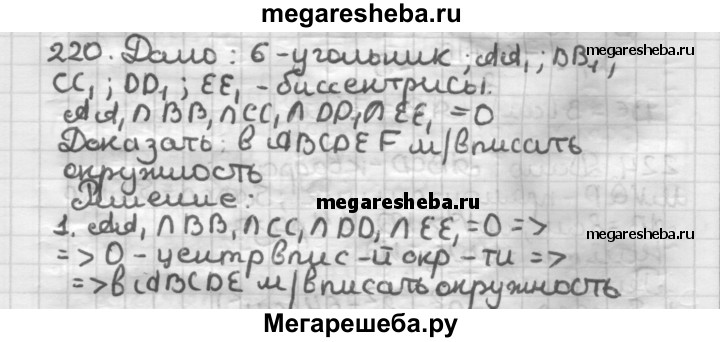 megaresheba.ru
220. Дано: 6-угольник; AA₁; BB₁;
CC₁; DD₁; EE₁ - биссектрисы.
AA₁ ∩ BB₁ ∩ CC₁ ∩ DD₁ ∩ EE₁ = O
Доказать: в ABCDEF м/вписать
окружность
Решение:
1. AA₁ ∩ BB₁ ∩ CC₁ ∩ DD₁ ∩ EE₁ = O =>
=> O - центр впис-й окр-ти =>
=> в ABCDE м/вписать окружность
megaresheba.ru
megaresheba.ru
Мегарешеба.ру